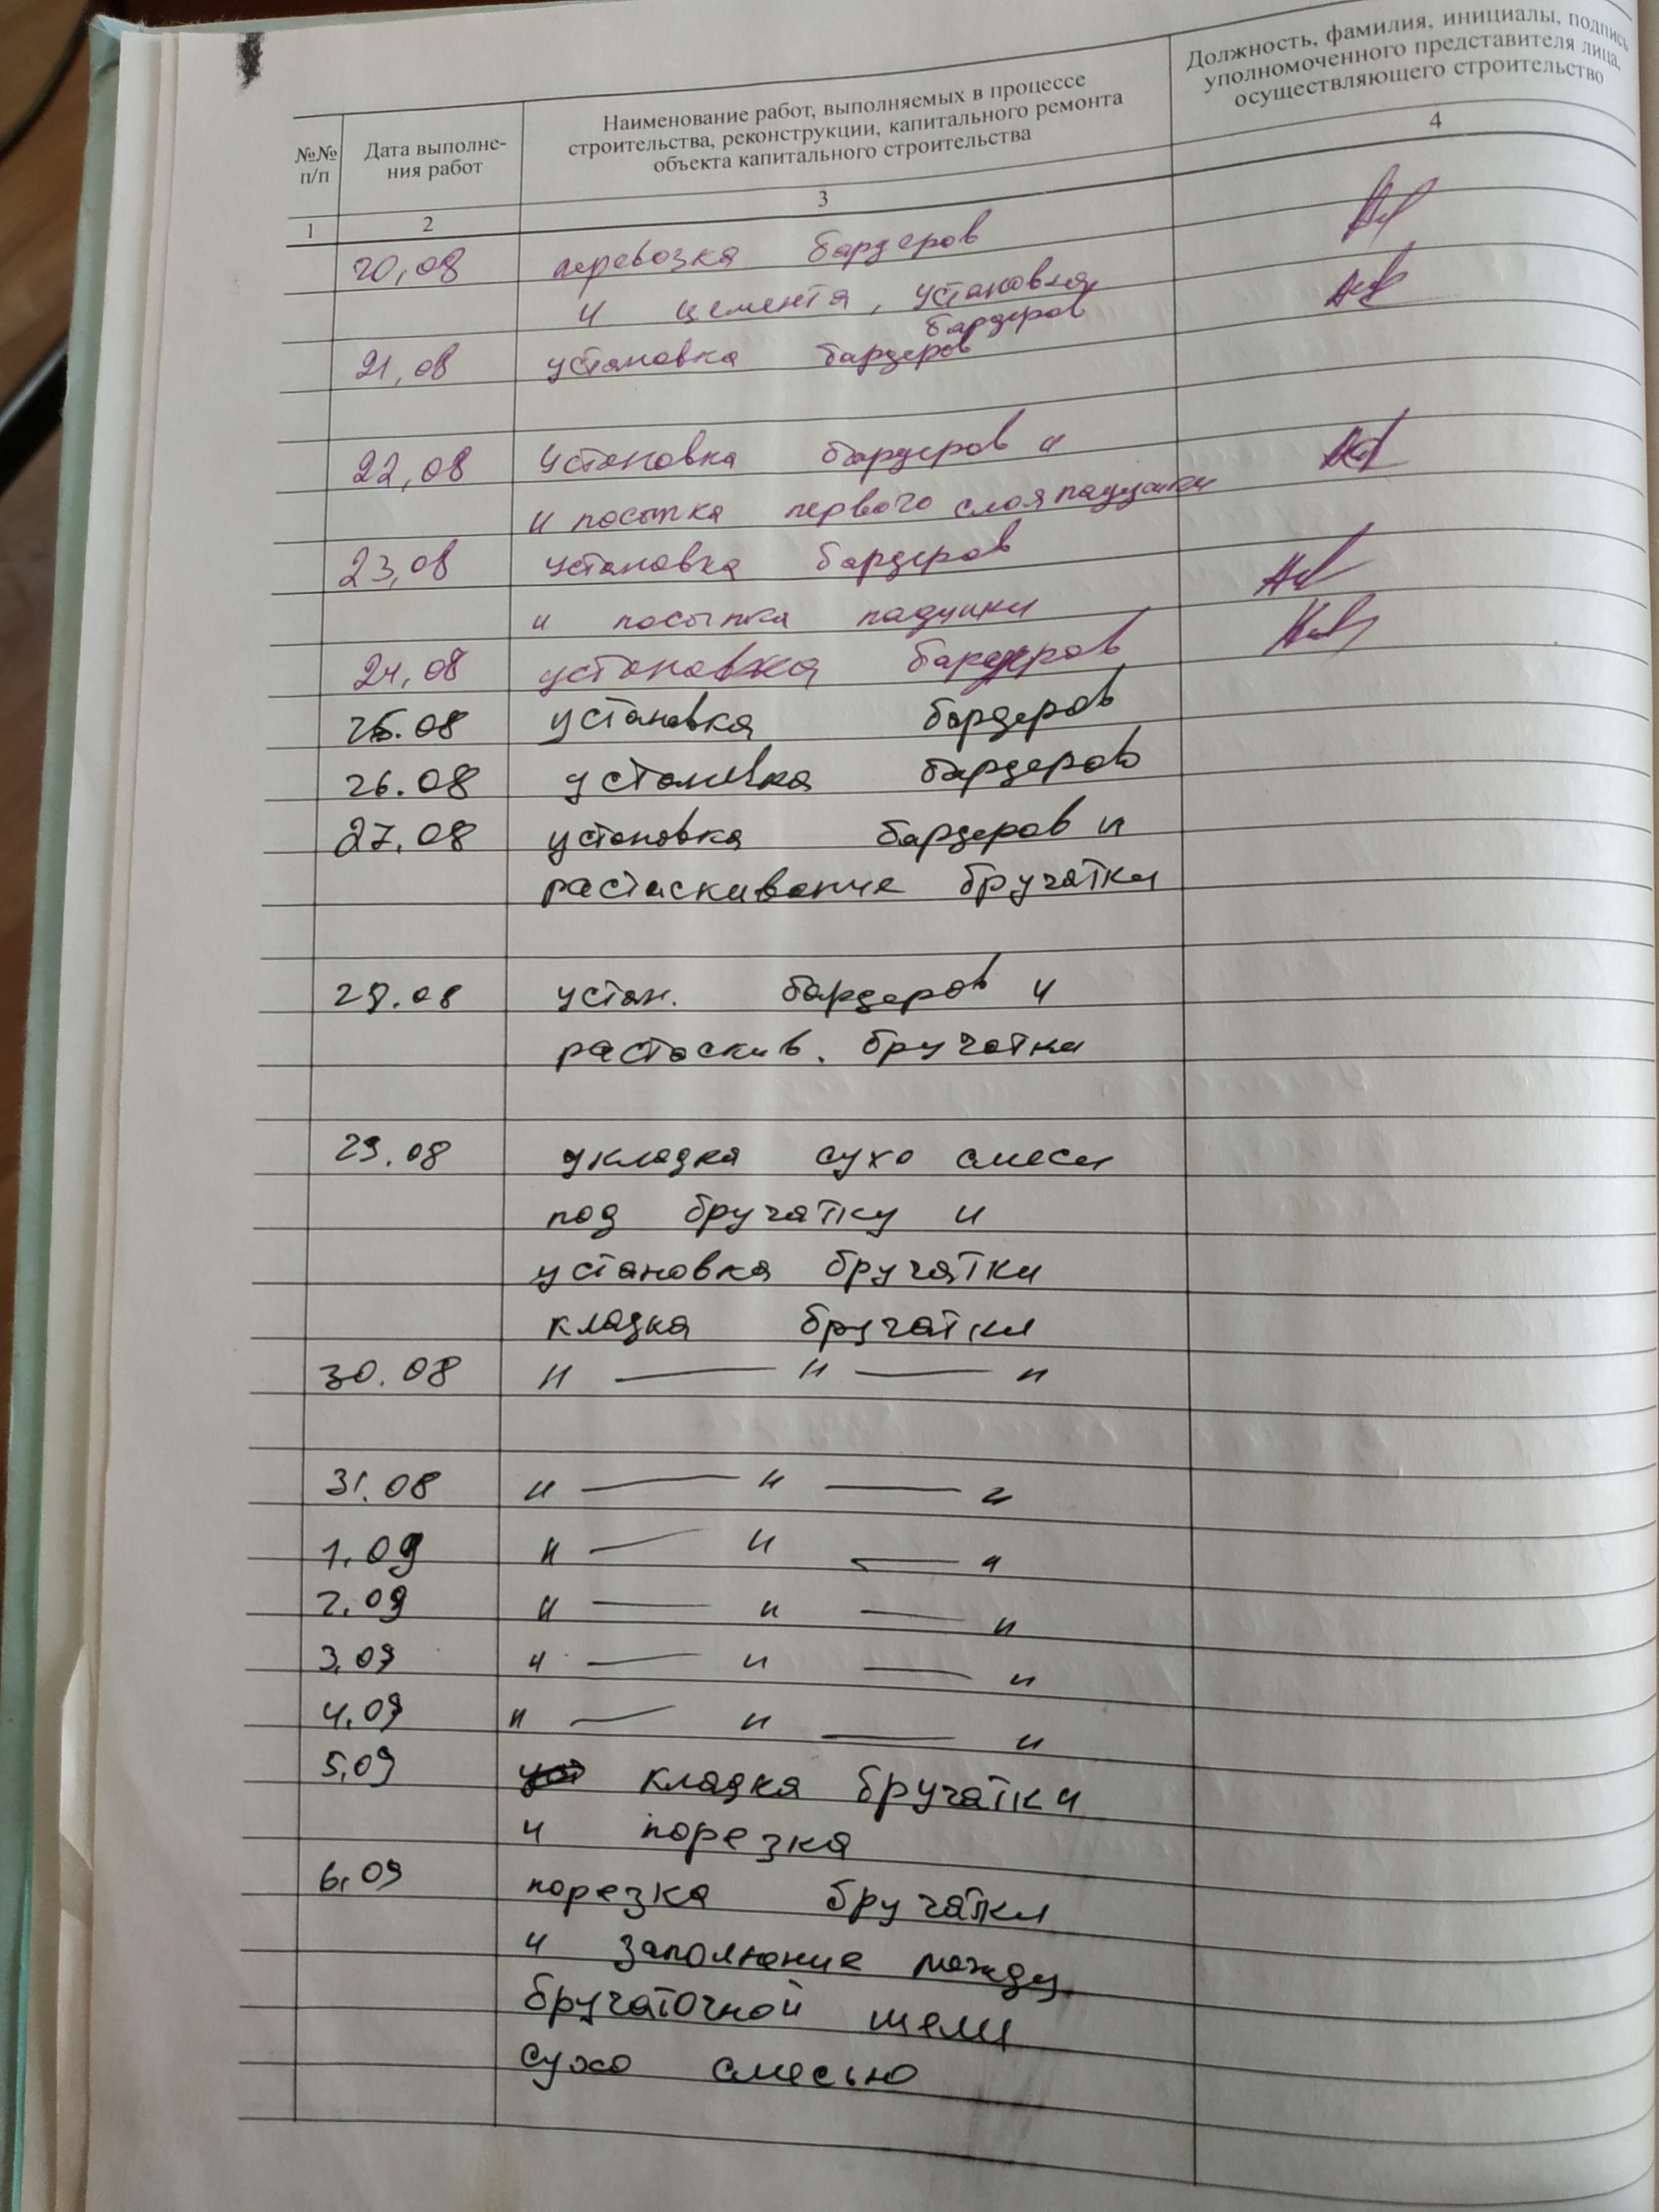 №№ п/п
Дата выполне-
ния работ
Наименование работ, выполняемых в процессе
строительства, реконструкции, капитального ремонта
объекта капитального строительства
Должность, фамилия, инициалы, подпись
уполномоченного представителя лица,
осуществляющего строительство
1 2 3 4
20,08 перевозка бардеров
и цемента, установка
бардеров
21,08 установка бардеров
22,08 Установка бардеров и
и посыпка первого слоя падушки
23,08 установка бардеров
и посыпка падушки
24,08 установка бардеров
25.08 установка бардеров
26.08 установка бардеров
27.08 установка бардеров и
растаскивание бручатки
28.08 устан. бардеров и
растаскив. бручатки
29.08 укладка сухо смеси
под бручатку и
установка бручатки
кладка бручатки
30.08 " — " — "
31.08 " — " — "
1.09 " — " — "
2.09 " — " — "
3.09 " — " — "
4.09 " — " — "
5.09 кладка бручатки
и порезка
6.09 порезка бручатки
и заполнение между
бручаточной щели
сухо смесью